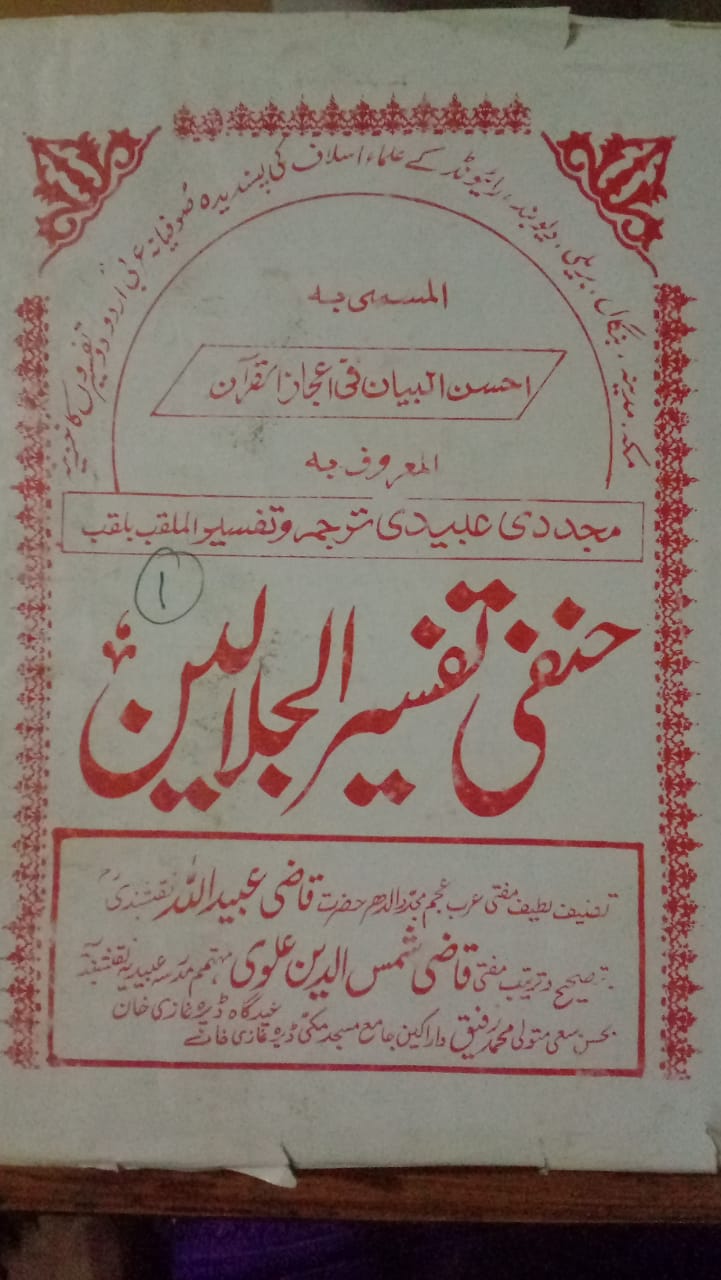 مکہ، مدینہ، بنگال، بریلی، دیوبند، رائیونڈ کے علماء اسلاف کی پسندیدہ صوفیانہ عربی اردو دو تفسیروں کا
المسمی بہ
احسن البیان فی اعجاز القرآن
المعروف بہ
مجددی عبیدی ترجمہ و تفسیر الملقب بلقب
۱
حنفی تفسیر الجلالین
تصنیف لطیف مفتی عرب عجم مجدد الدھر حضرت قاضی عبید اللہ نقشبندی رح
تصحیح و ترتیب مفتی قاضی شمس الدین علوی مہتمم مدرسہ عبیدیہ نقشبندیہ
عیدگاہ ڈیرہ غازی خان
بحسن سعی متولی محمد رفیق و اراکین جامع مسجد مکی ڈیرہ غازی خان